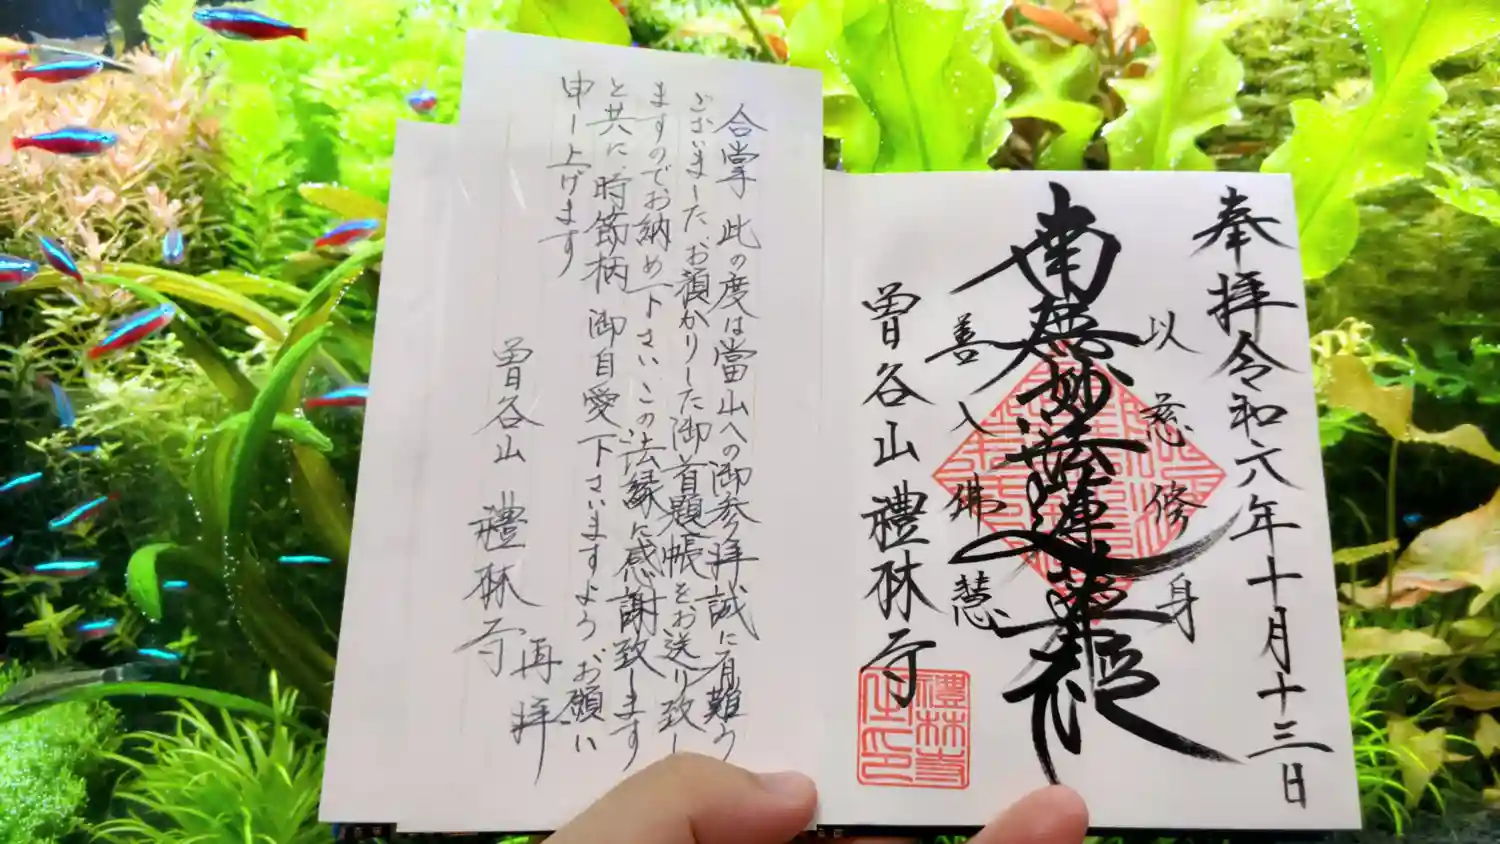 奉拝令和六年十月十三日
以慈修身
南無妙法蓮華経
善入佛慧
曽谷山禮林寺
禮林寺
合掌 此の度は當山への御参拝誠に有難う
ございました お預かりした御首題帳をお送り致し
ますのでお納め下さい この法縁に感謝致します
と共に、時節柄 御自愛下さいますよう お願い
申し上げます
曽谷山 禮林寺 再拝